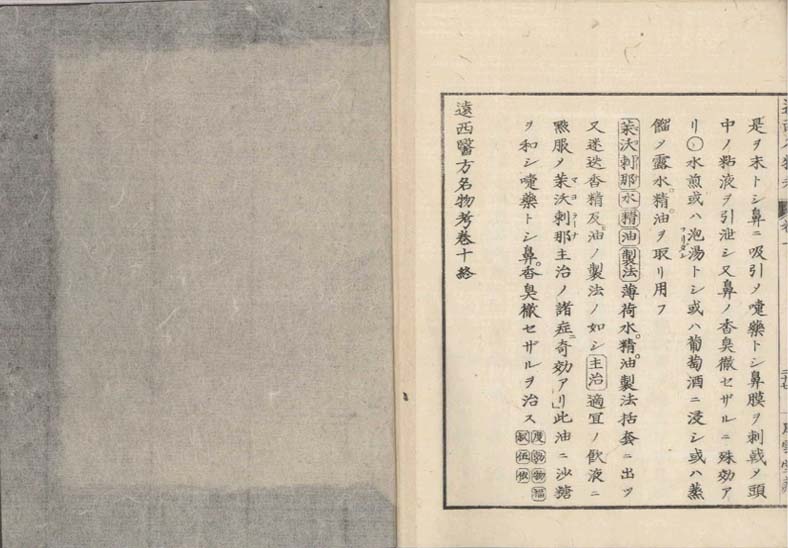 是ヲ末トシ鼻ニ吸引メ嚏藥トシ鼻膜ヲ刺戟メ頭
中ノ粘液ヲ引泄シ又鼻ノ香臭徹セザルニ殊効ア
リ○水煎或ハ泡湯トシ或ハ葡萄酒ニ浸シ或ハ蒸
フリダシ
餾ノ露水。精油ヲ取リ用フ
茱沃刺那水精油製法薄荷水。精。油製法括套ニ出ツ
又迷迭香精及。油ノ製法ノ如シ主治適宜ノ飮液ニ
㸃服ノ茱沃刺那主治ノ諸症ニ奇効アリ」此油ニ沙糖
マヨラーナ
ヲ和シ嚏藥トシ鼻。香臭徹セザルヲ治ス
遠西醫方名物考卷十終